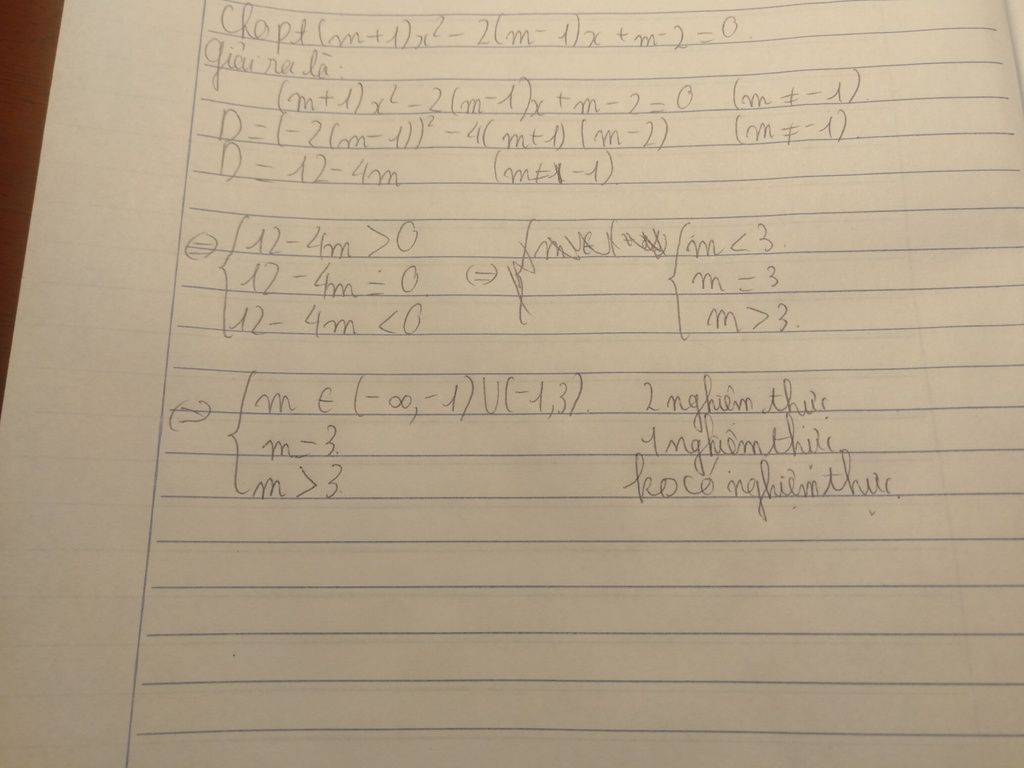 Cho pt (m+1)x² - 2(m-1)x + m-2 = 0
Giải ra là:
(m+1)x² - 2(m-1)x + m - 2 = 0 (m ≠ -1)
D = (-2(m-1))² - 4(m+1)(m-2) (m ≠ -1)
D = 12 - 4m (m ≠ -1)
⇔ { 12 - 4m > 0 { m < 3
12 - 4m = 0 ⇔ m = 3
12 - 4m < 0 m > 3.
⇔ { m ∈ (-∞,-1) U (-1,3). 2 nghiệm thực
m = 3. 1 nghiệm thực
m > 3. ko có nghiệm thực.